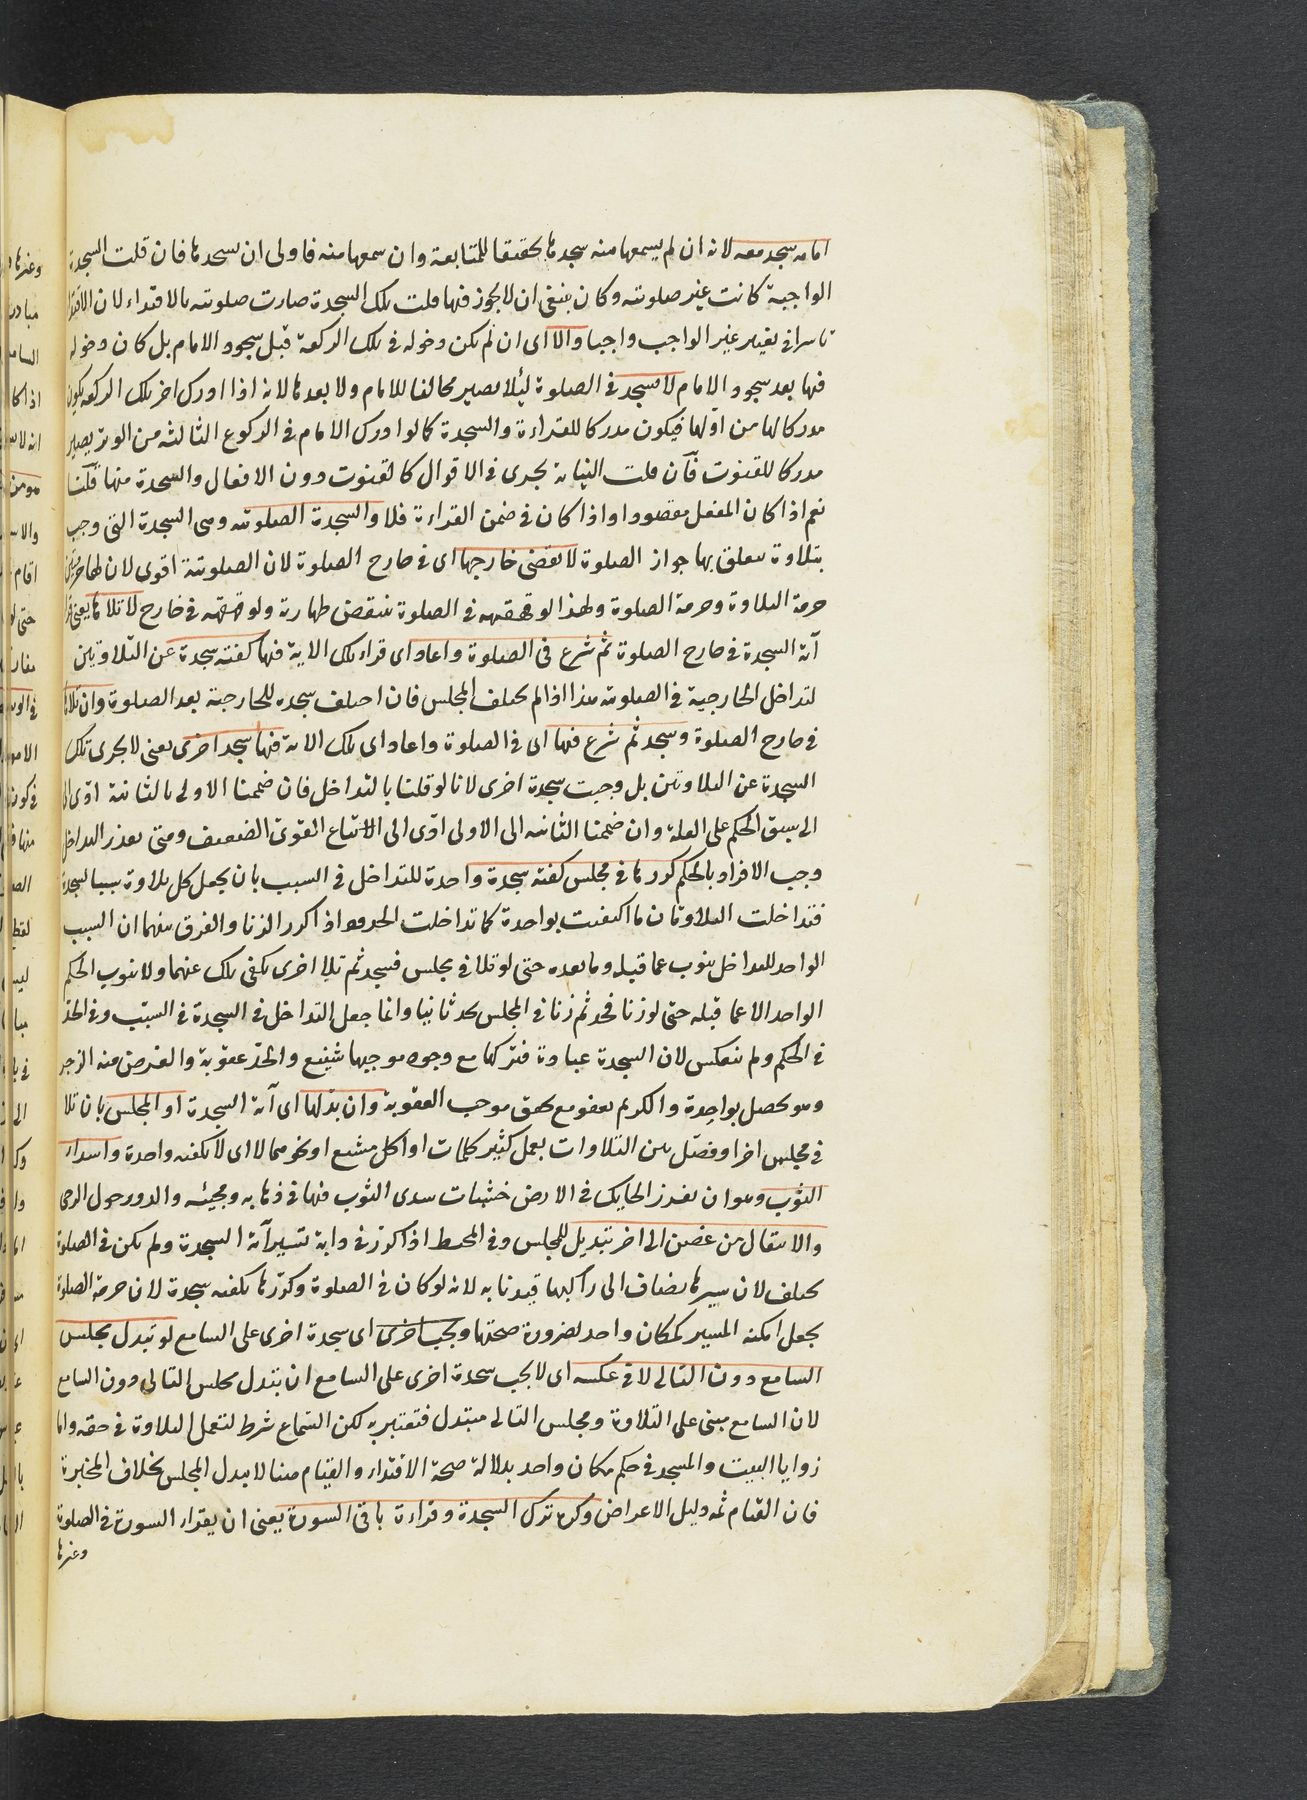 امامه سجد معه لانه ان لم يسمعها منه سجدها تحقيقا للمتابعة وان سمعها منه فاولى ان يسجدها فان قلت السجدة
الواجبة كانت غير صلوتيه وكان ينبغي ان لا يجوز فيها قلت تلك السجدة صارت صلوتيه بالاقتداء لان الاقتداء
تاثيرا في تغيير غير الواجب واجبا والا اى ان لم يكن دخوله في تلك الركعة قبل سجود الامام بل كان دخوله
فيها بعد سجود الامام لا يسجد في الصلوة لئلا يصير مخالفا للامام ولا بعدها لانه اذا ادرك اخر تلك الركعة يكون
مدركا لها من اولها فيكون مدركا للقراءة والسجدة كما لو ادرك الامام في الركوع الثالثه من الوتر يصير
مدركا للقنوت فان قلت النيابة يجرى في الاقوال كالقنوت دون الافعال والسجدة منها قلنا
نعم اذا كان الفعل مقصودا واذا كان في ضمن القراءة فلا والسجدة الصلوتيه وهى السجدة التى وجب
بتلاوة تتعلق بها جواز الصلوة لا تقضى خارجها اى في خارج الصلوة لان الصلوتية اقوى لان لها حرمتين
حرمة التلاوة وحرمة الصلوة ولهذا لو قهقهه في الصلوة ينتقض طهارة ولو قهقهه في خارج لا تلاها يعنى قرا
آية السجدة في خارج الصلوة ثم شرع في الصلوة واعاد اى قراء تلك الاية فيها كفته سجدة عن التلاوتين
لتداخل الخارجية في الصلوتيه هذا اذا لم يختلف المجلس فان اختلف سجده للخارجية بعد الصلوة وان تلاها
في خارج الصلوة وسجد ثم شرع فيها اى في الصلوة واعاد اى تلك الاية فيها سجد اخرى يعنى لا يجرى تلك
السجدة عن التلاوتين بل وجبت سجدة اخرى لانا لو قلنا بالتداخل فان ضممنا الاولى بالثانية ادى
الى سبق الحكم على العلة وان ضممنا الثانيه الى الاولى ادى الى اتباع القوى الضعيف ومتى تعذر التداخل
وجب الافراد بالحكم كررها في مجلس كفته سجدة واحدة للتداخل في السبب بان يجعل كل تلاوة سببا لسجدة
فتداخلت التلاوتان فاكتفيت بواحدة كما تداخلت الحدود اذا كرر الزنا والفرق بينهما ان السبب
الواحد للتداخل ينوب عما قبله وما بعده حتى لو تلا في مجلس فسجد ثم تلا اخرى يكفى تلك عنهما ولا ينوب الحكم
الواحد الا عما قبله حتى لو زنا فحد ثم زنا في المجلس يحد ثانيا وانما جعل التداخل في السجدة في السبب وفي الحد
في الحكم ولم ينعكس لان السجدة عبادة فتركها مع وجود موجبها شنيع والحد عقوبة والغرض منه الزجر
وهو يحصل بواحدة والكريم يعفو مع تحقق موجب العقوبة وان بدلها اى آية السجدة او المجلس بان تلا
في مجلس اخر او فصل بين التلاوات بعمل كثير كلمات او اكل مشبع او نحوهما لا اى لا يكفيه واحدة واسداء
الثوب وهو ان يغرز الحايك في الارض خشبات يسدى الثوب فيها في ذهابه ومجيئه والدور حول الرحى
والانتقال من غصن الى اخر تبديل للمجلس وفي المحيط اذا كرر في دابة تسير آية السجدة ولم يكن في الصلوة
يختلف لان سيرها يضاف الى راكبها قيدنا به لانه لو كان في الصلوة وكررها يكفيه سجدة لان حرمة الصلوة
يجعل امكنه المسير كمكان واحد لضرورة صحتها ويجب اخرى اى سجدة اخرى على السامع لو تبدل مجلس
السامع دون التالى لا في عكسه اى لا يجب سجدة اخرى على السامع ان يتبدل مجلس التالى دون السامع
لان السامع مبنى على التلاوة ومجلس التالى متبدل فتعتبر به لكن السماع شرط لتعمل التلاوة في حقه واما
زوايا البيت والمسجد في حكم مكان واحد بدلالة صحة الاقتداء والقيام هنا لا يبدل المجلس بخلاف المخيرة
فان القيام ثمه دليل الاعراض وكره ترك السجدة وقراءة باقى السورة يعنى ان يقراء السورة في الصلوة
وغيرها